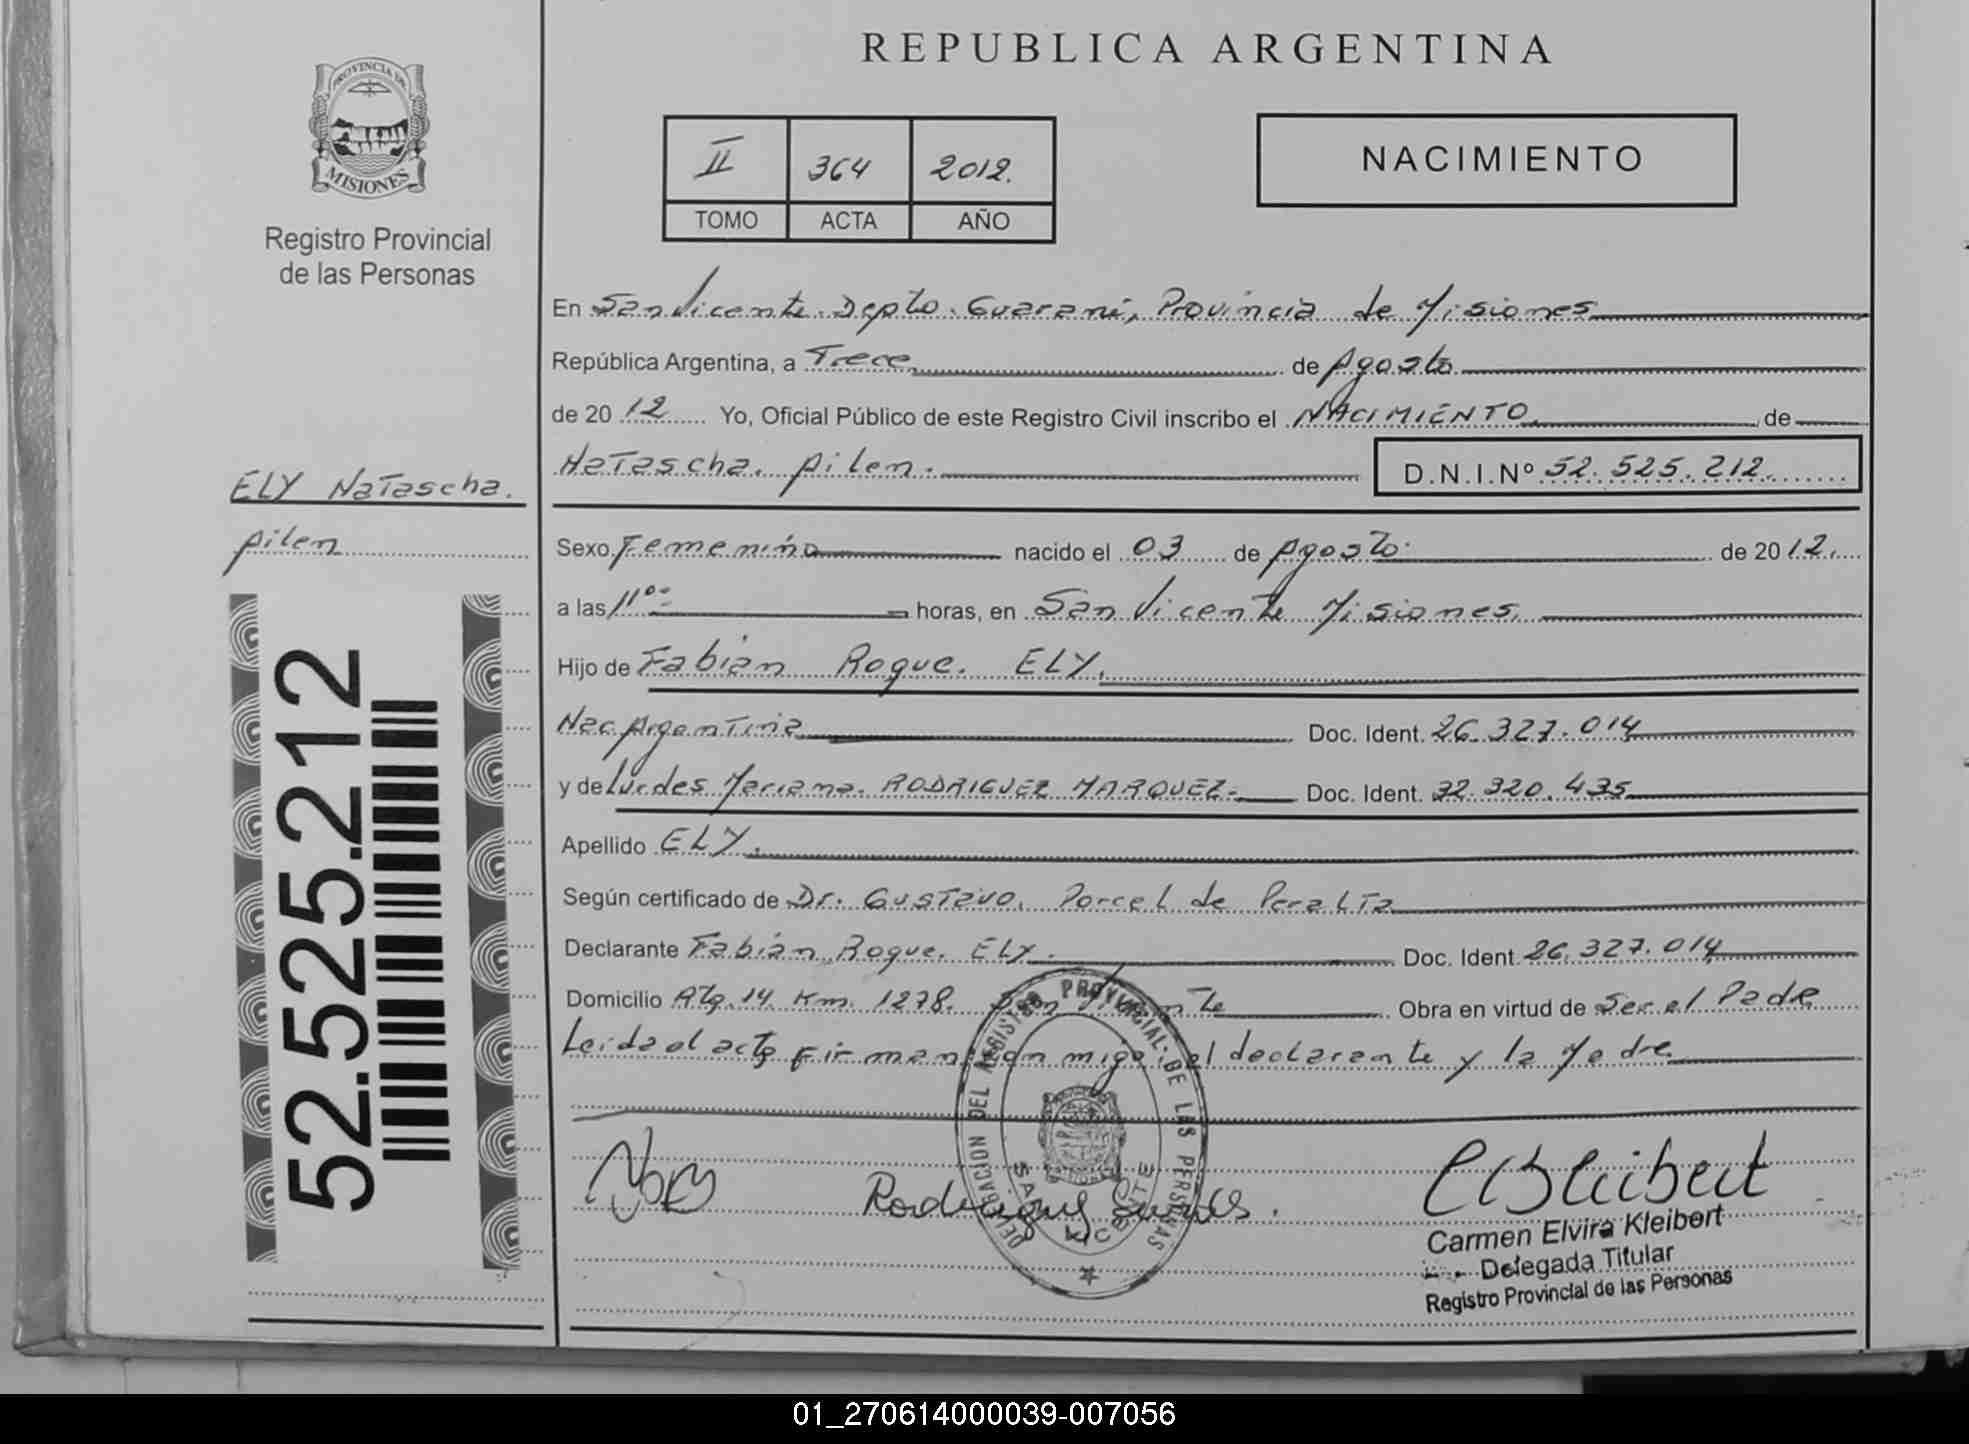 REPUBLICA ARGENTINA
PROVINCIA DE
MISIONES
Registro Provincial
de las Personas
II 364 2012.
TOMO ACTA AÑO
NACIMIENTO
En San Vicente. Depto. Guaraní, Provincia de Misiones
República Argentina, a Trece de Agosto
de 2012 Yo, Oficial Público de este Registro Civil inscribo el NACIMIENTO de
Natascha. Pilen.
D.N.I.Nº 52.525.212.
ELY Natascha.
Pilen
52.525.212
Sexo Femenino nacido el 03 de Agosto de 2012.
a las 11ºº horas, en San Vicente Misiones.
Hijo de Fabián Roque. ELY.
Nac Argentina Doc. Ident. 26.327.014
y de Lurdes Mariana. RODRIGUEZ MARQUEZ. Doc. Ident. 32.320.435
Apellido ELY.
Según certificado de Dr. Gustavo. Porcel de Peralta
Declarante Fabián Roque. ELY. Doc. Ident. 26.327.014
Domicilio Rta.14. Km. 1278. San Vicente Obra en virtud de Ser el Padre
Leida el acta firman conmigo: el declarante y la Madre
DELEGACION DEL REGISTRO PROVINCIAL DE LAS PERSONAS
SAN VICENTE
Rodriguez Lurdes.
CEKleibert
Carmen Elvira Kleibert
Delegada Titular
Registro Provincial de las Personas
01_270614000039-007056